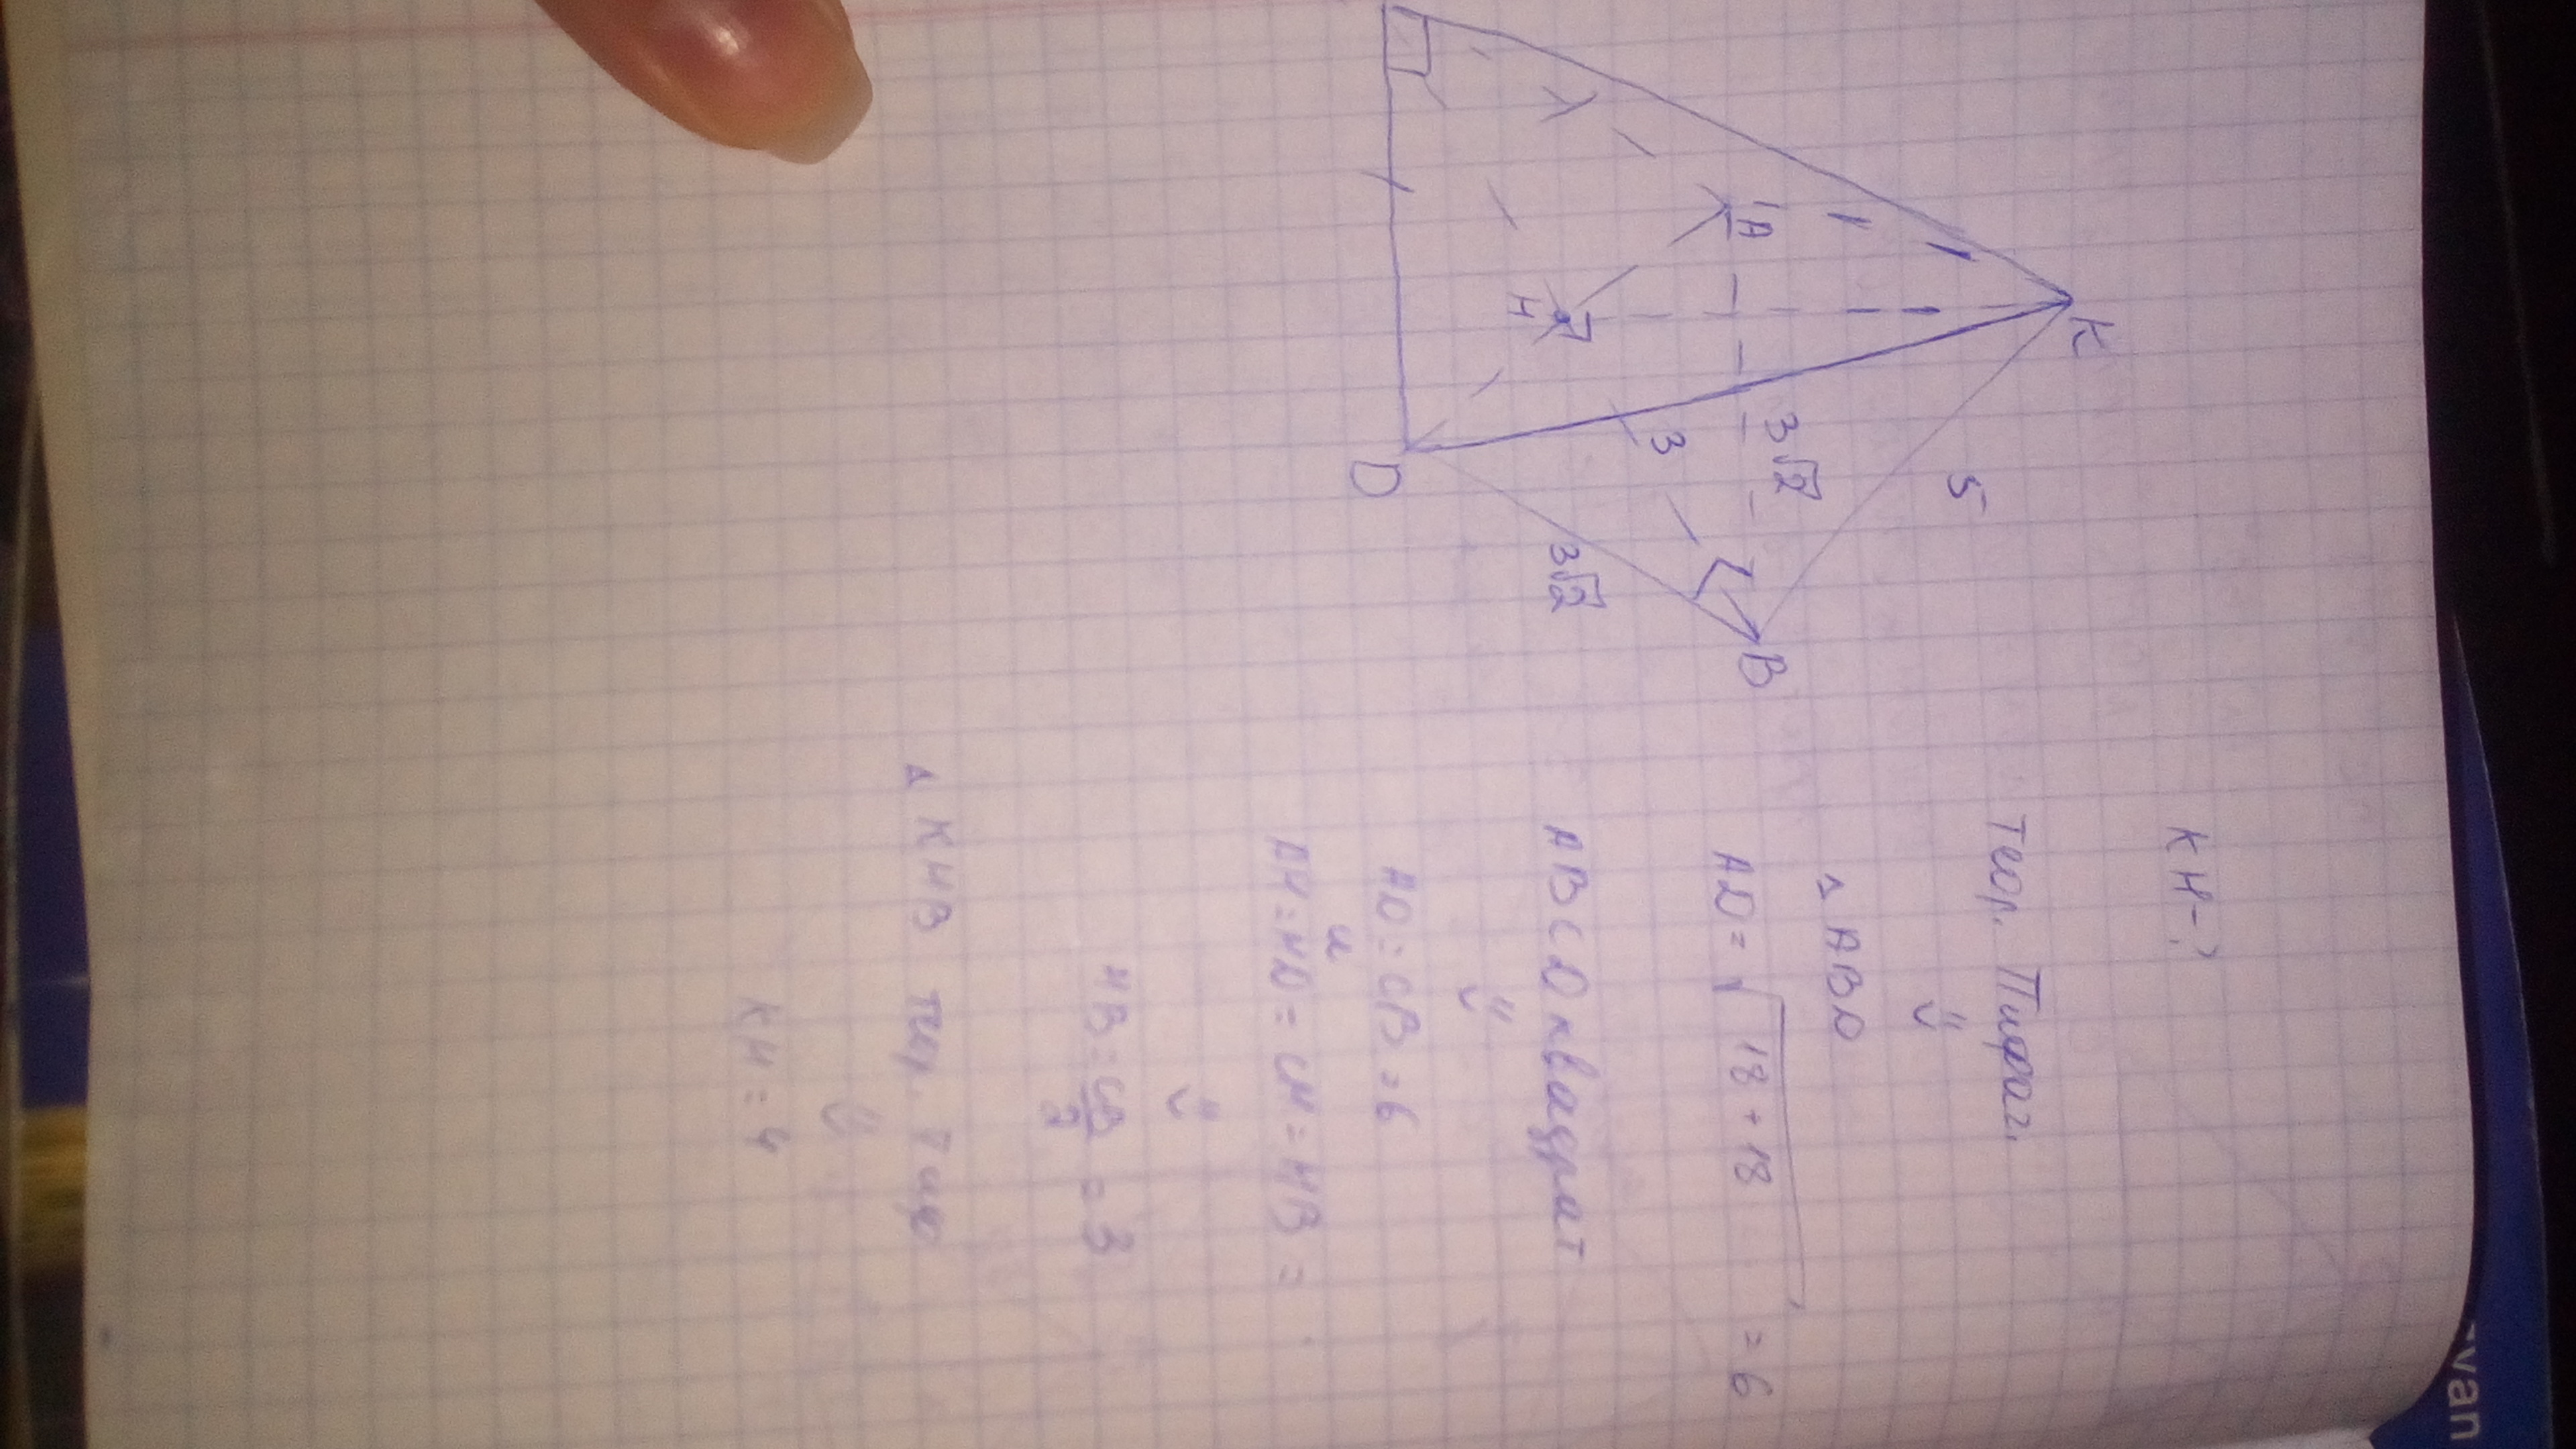 K
A
H
D
B
5
3√2
3
3√2
KH-?
Теор. Пифаг.
△ABD
AD=√18+18 =6
ABCD квадрат
AD=CB=6
и
AH=HD=CH=HB=
HB=CB/2=3
△KHB теор. Пиф
KH=4
van